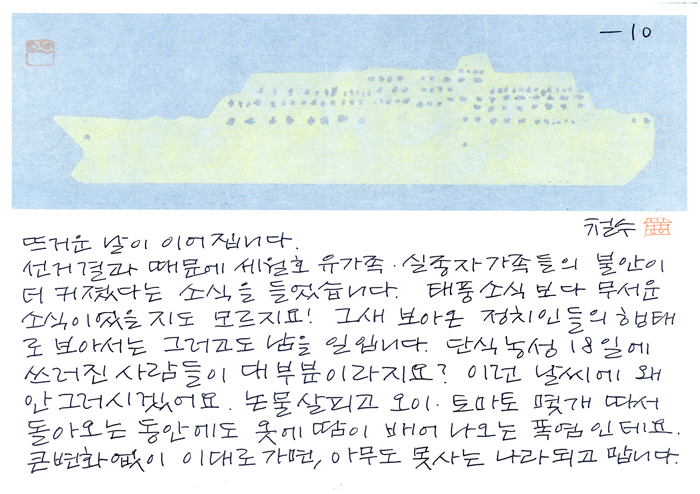 -10
철수
뜨거운 날이 이어집니다.
선거결과 때문에 세월호 유가족·실종자가족들의 불안이
더 커졌다는 소식을 들었습니다. 태풍소식보다 무서운
소식이었을지도 모르지요! 그새 보아온 정치인들의 행태
로 보아서는 그러고도 남을 일입니다. 단식농성 18일에
쓰러진 사람들이 대부분이라지요? 이런 날씨에 왜
안그러시겠어요. 논물살피고 오이·토마토 몇개 따서
돌아오는 동안에도 옷에 땀이 배어 나오는 폭염인데요.
큰변화없이 이대로가면, 아무도 못사는 나라되고 맙니다.